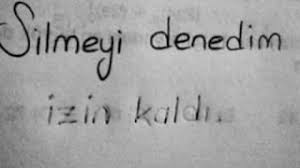 Silmeyi denedim
izin kaldı..